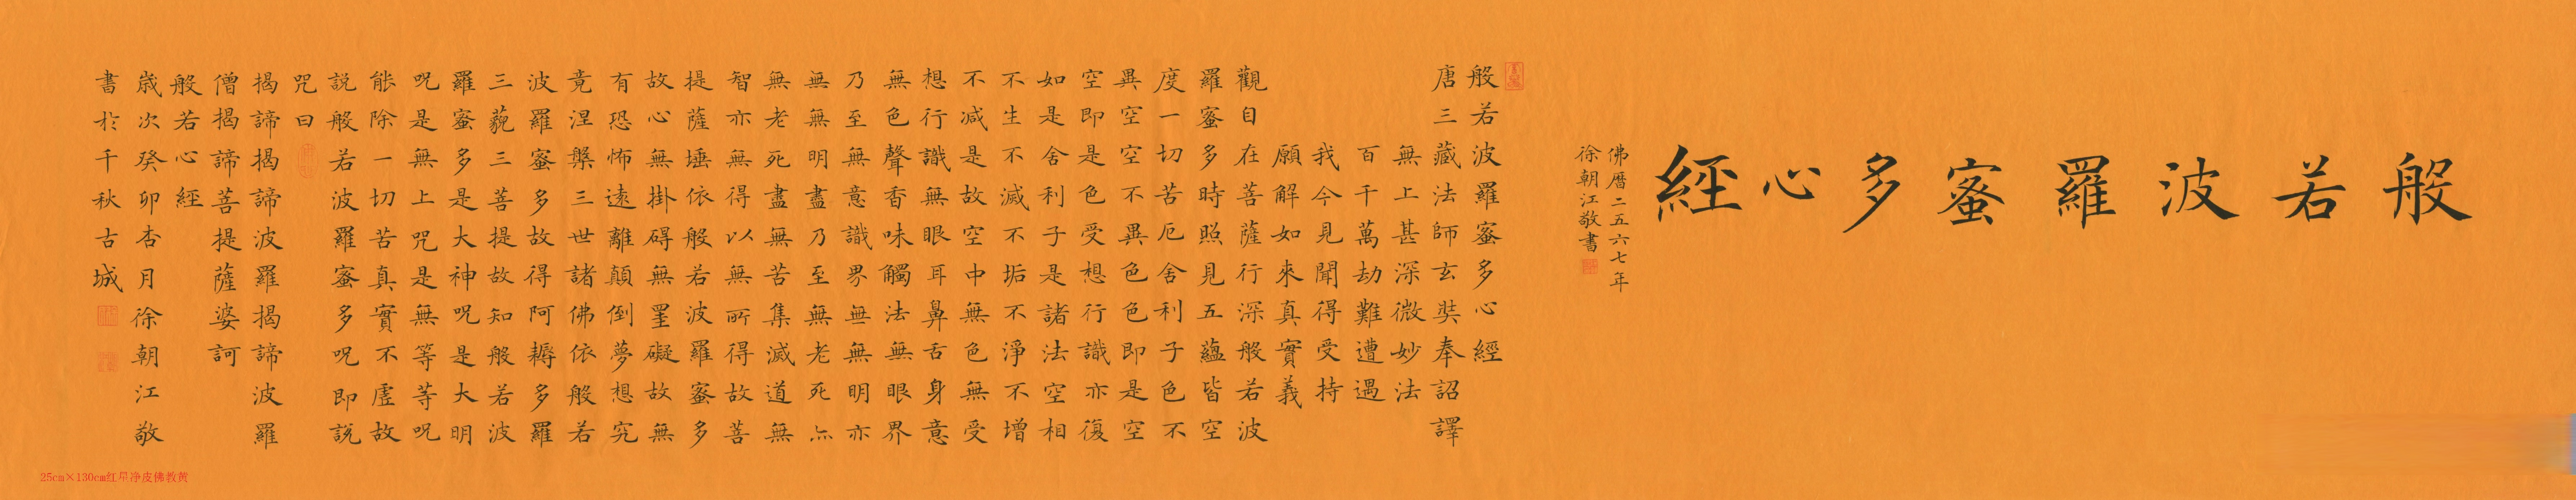 般若波羅蜜多心經
佛曆二五六七年
徐朝江敬書
般若波羅蜜多心經
唐三藏法師玄奘奉詔譯
無上甚深微妙法
百千萬劫難遭遇
我今見聞得受持
願解如來真實義
觀自在菩薩行深般若波
羅蜜多時照見五蘊皆空
度一切苦厄舍利子色不
異空空不異色色即是空
空即是色受想行識亦復
如是舍利子是諸法空相
不生不滅不垢不淨不增
不減是故空中無色無受
想行識無眼耳鼻舌身意
無色聲香味觸法無眼界
乃至無意識界無無明亦
無無明盡乃至無老死亦
無老死盡無苦集滅道無
智亦無得以無所得故菩
提薩埵依般若波羅蜜多
故心無掛碍無罣礙故無
有恐怖遠離顛倒夢想究
竟涅槃三世諸佛依般若
波羅蜜多故得阿耨多羅
三藐三菩提故知般若波
羅蜜多是大神咒是大明
咒是無上咒是無等等咒
能除一切苦真實不虛故
説般若波羅蜜多咒即説
咒曰
揭諦揭諦波羅揭諦波羅
僧揭諦菩提薩婆訶
般若心經
歲次癸卯杏月徐朝江敬
書於千秋古城
25cm×130cm红星净皮佛教黄